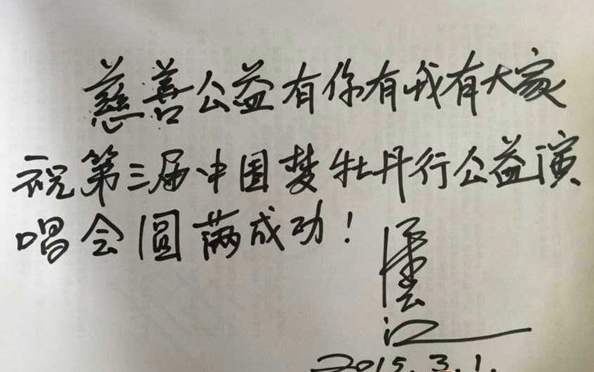 慈善公益有你有我有大家
祝第三届中国梦牡丹行公益演
唱会圆满成功！
江
2015.3.1.